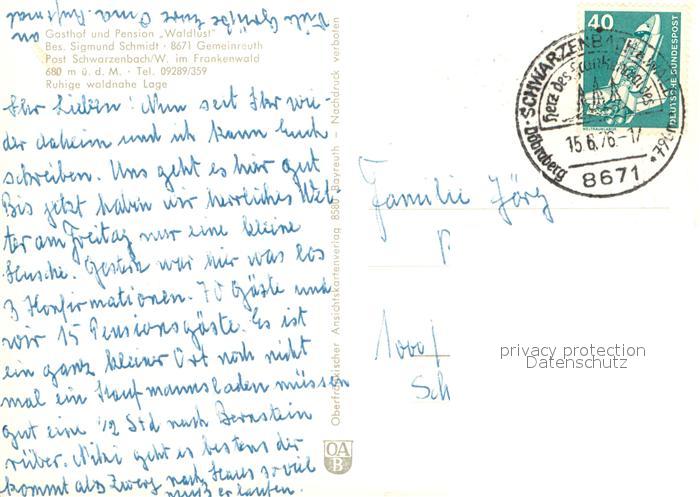 Viele Grüße Eure Oma.
an
Gasthof und Pension „Waldlust"
Bes. Sigmund Schmidt · 8671 Gemeinreuth
Post Schwarzenbach/W. im Frankenwald
680 m ü. d. M. · Tel. 09289/359
Ruhige waldnahe Lage
Ihr Lieben! Nun seit Ihr wie-
der daheim und ich kann Euch
schreiben. Uns geht es hier gut
Bis jetzt haben wir herrliches Wet-
ter am Freitag nur eine kleine
Husche. Gestern war hier was los
3 Konfirmationen. 70 Gäste und
wir 15 Pensionsgäste. Es ist
ein ganz kleiner Ort noch nicht
mal ein Kaufmannsladen müssen
gut eine 1/2 Std nach Bernstein
rüber. Mitzi geht es bestens der
kommt als Zwerg nach Haus so viel
muß er laufen.
Oberfränkischer Ansichtskartenverlag 8580 Bayreuth – Nachdruck verboten
OA
B
40
DEUTSCHE BUNDESPOST
WELTRAUMLABOR
SCHWARZENBACH a. WALD
Herz des Frankenwaldes
15.6.76.-17
Döbraberg
795 m
8671
Familie Jörg
1000
Sch
privacy protection
Datenschutz